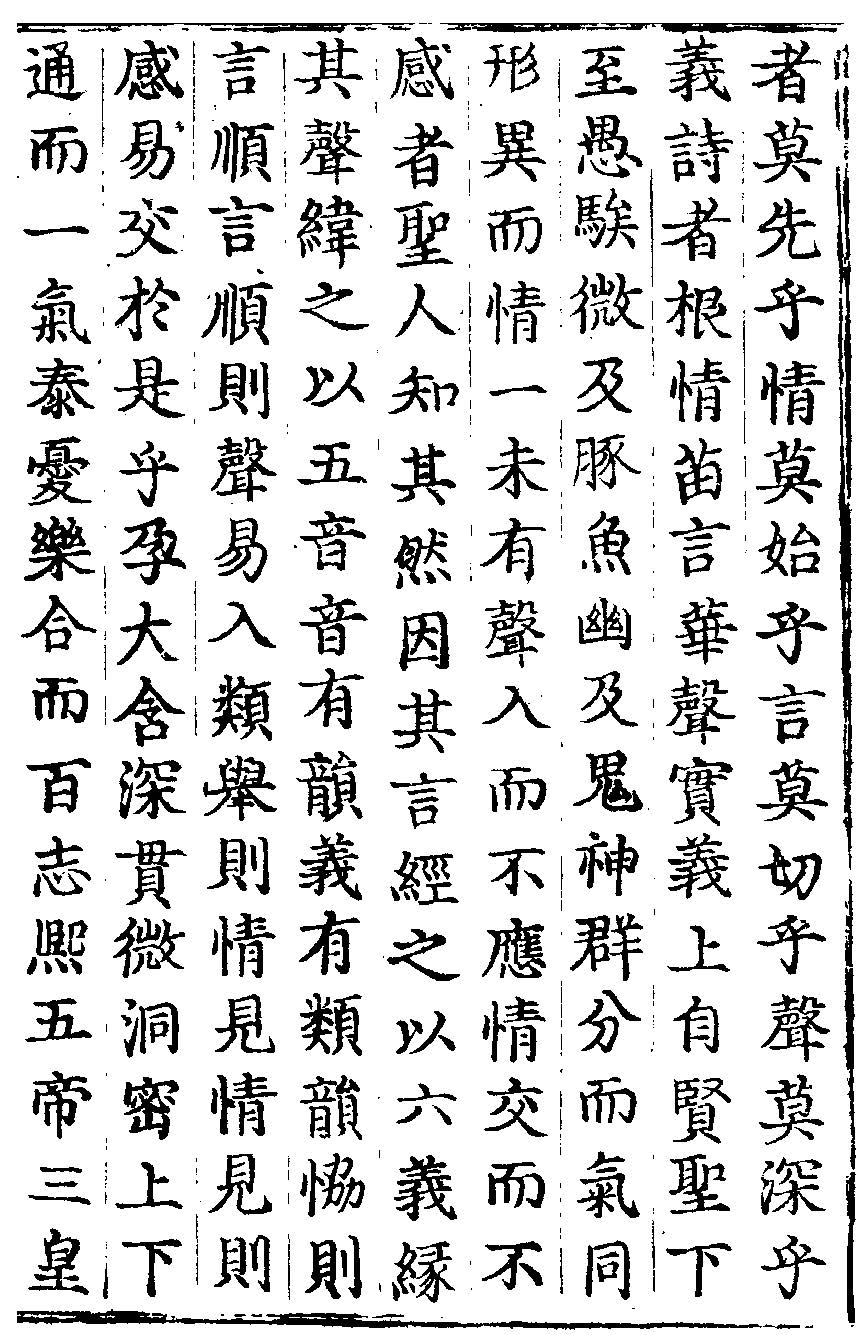 者莫先乎情莫始乎言莫切乎聲莫深乎
義詩者根情苗言華聲實義上自賢聖下
至愚騃微及豚魚幽及鬼神群分而氣同
形異而情一未有聲入而不應情交而不
感者聖人知其然因其言經之以六義緣
其聲緯之以五音音有韻義有類韻恊則
言順言順則聲易入類舉則情見情見則
感易交於是乎孕大含深貫微洞密上下
通而一氣泰憂樂合而百志熙五帝三皇